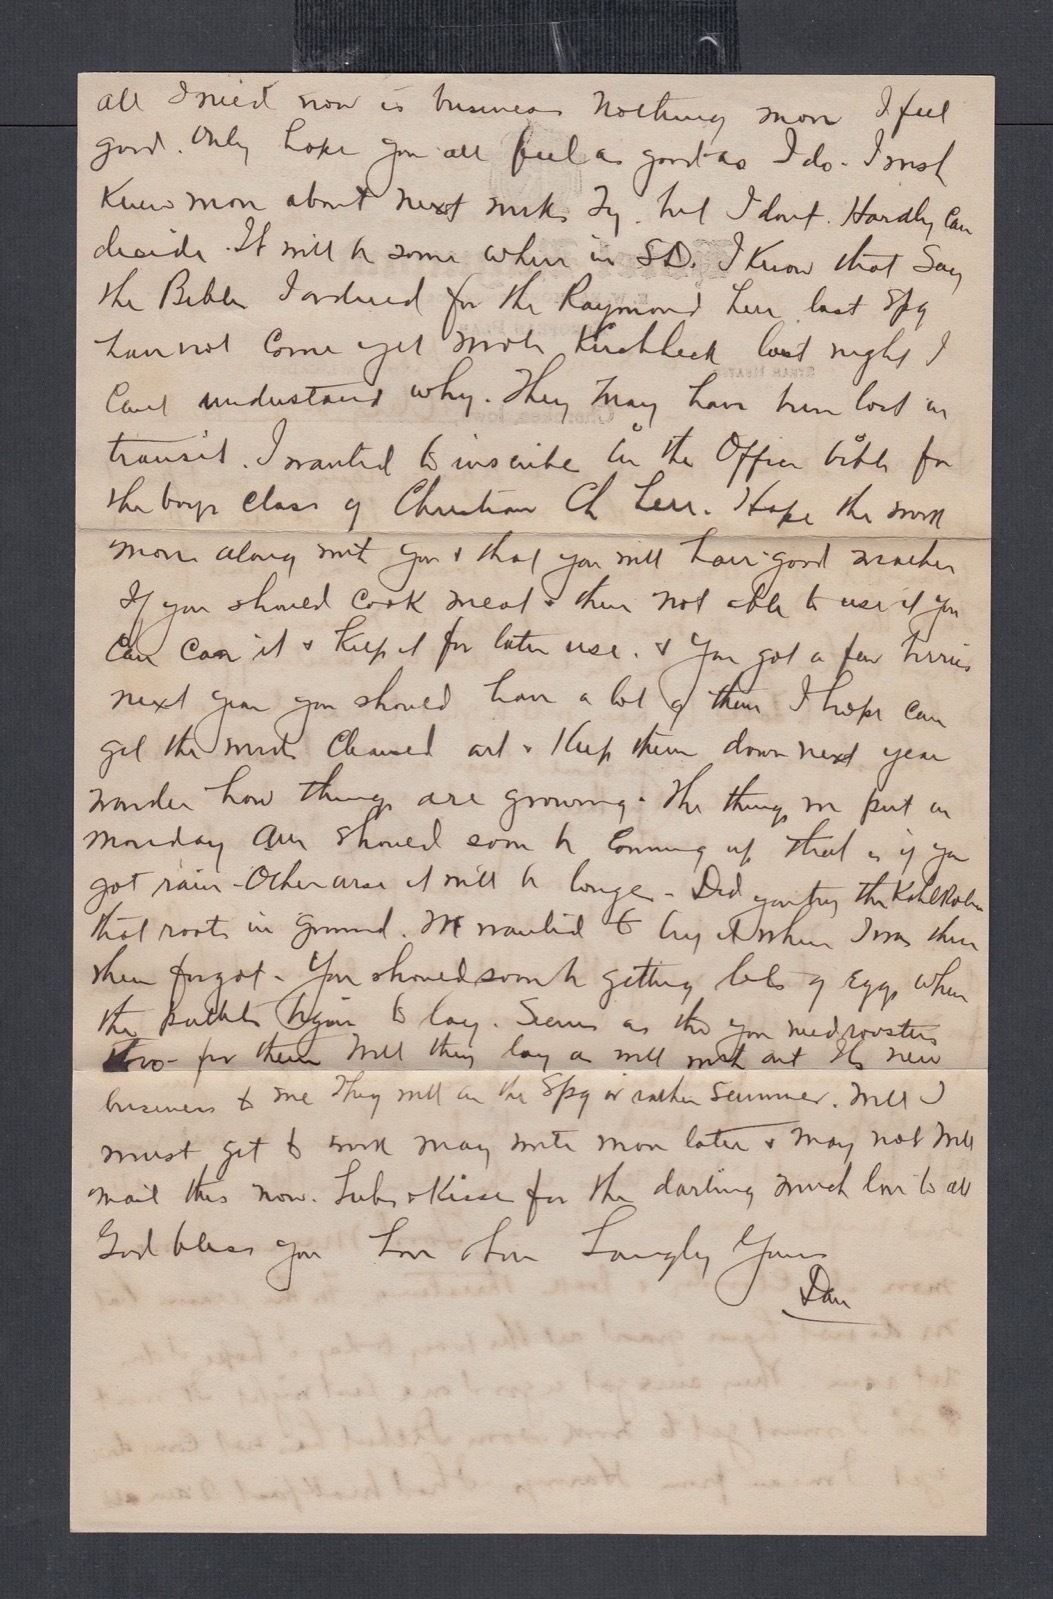 all I need now is business nothing more I feel
good. Only hope you all feel as good as I do. I wish
knew more about next weeks Ty. but I dont. Hardly can
decide. It will be some where in S.D. I know that Say
the Bibles I ordered for the Raymond here last Spg
have not come yet wrote last night I
cant understand why. They may have been lost in
transit. I wanted to inscribe in the Office bible for
the boys class of Christian Ch here. Hope the work
move along with you & that you will have good weather
If you should cook meat & then not able to use it you
can can it & keep it for later use. & you got a few berries
next year you should have a lot of them I hope can
get the weeds cleaned out & keep them down next year
wonder how things are growing. The things we put in
monday am should soon be coming up that is if you
got rain - Otherwise it will be longer - Did you try the Kohl Rabi
that roots in ground. We wanted to try it when I was there
then forgot - You should soon be getting lots of Eggs when
the pullets begin to lay. Seems as tho you need roosters
for them Will they lay as well with out Its new
business to me They will in the Spg or rather Summer. Well I
must get to work may write more later & may not Will
mail this now. & Kisses for the darling much love to all
God bless you Love Love Yours
Dan